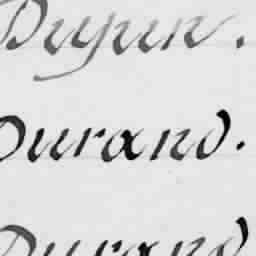 Dujun.
Durand.
Durand